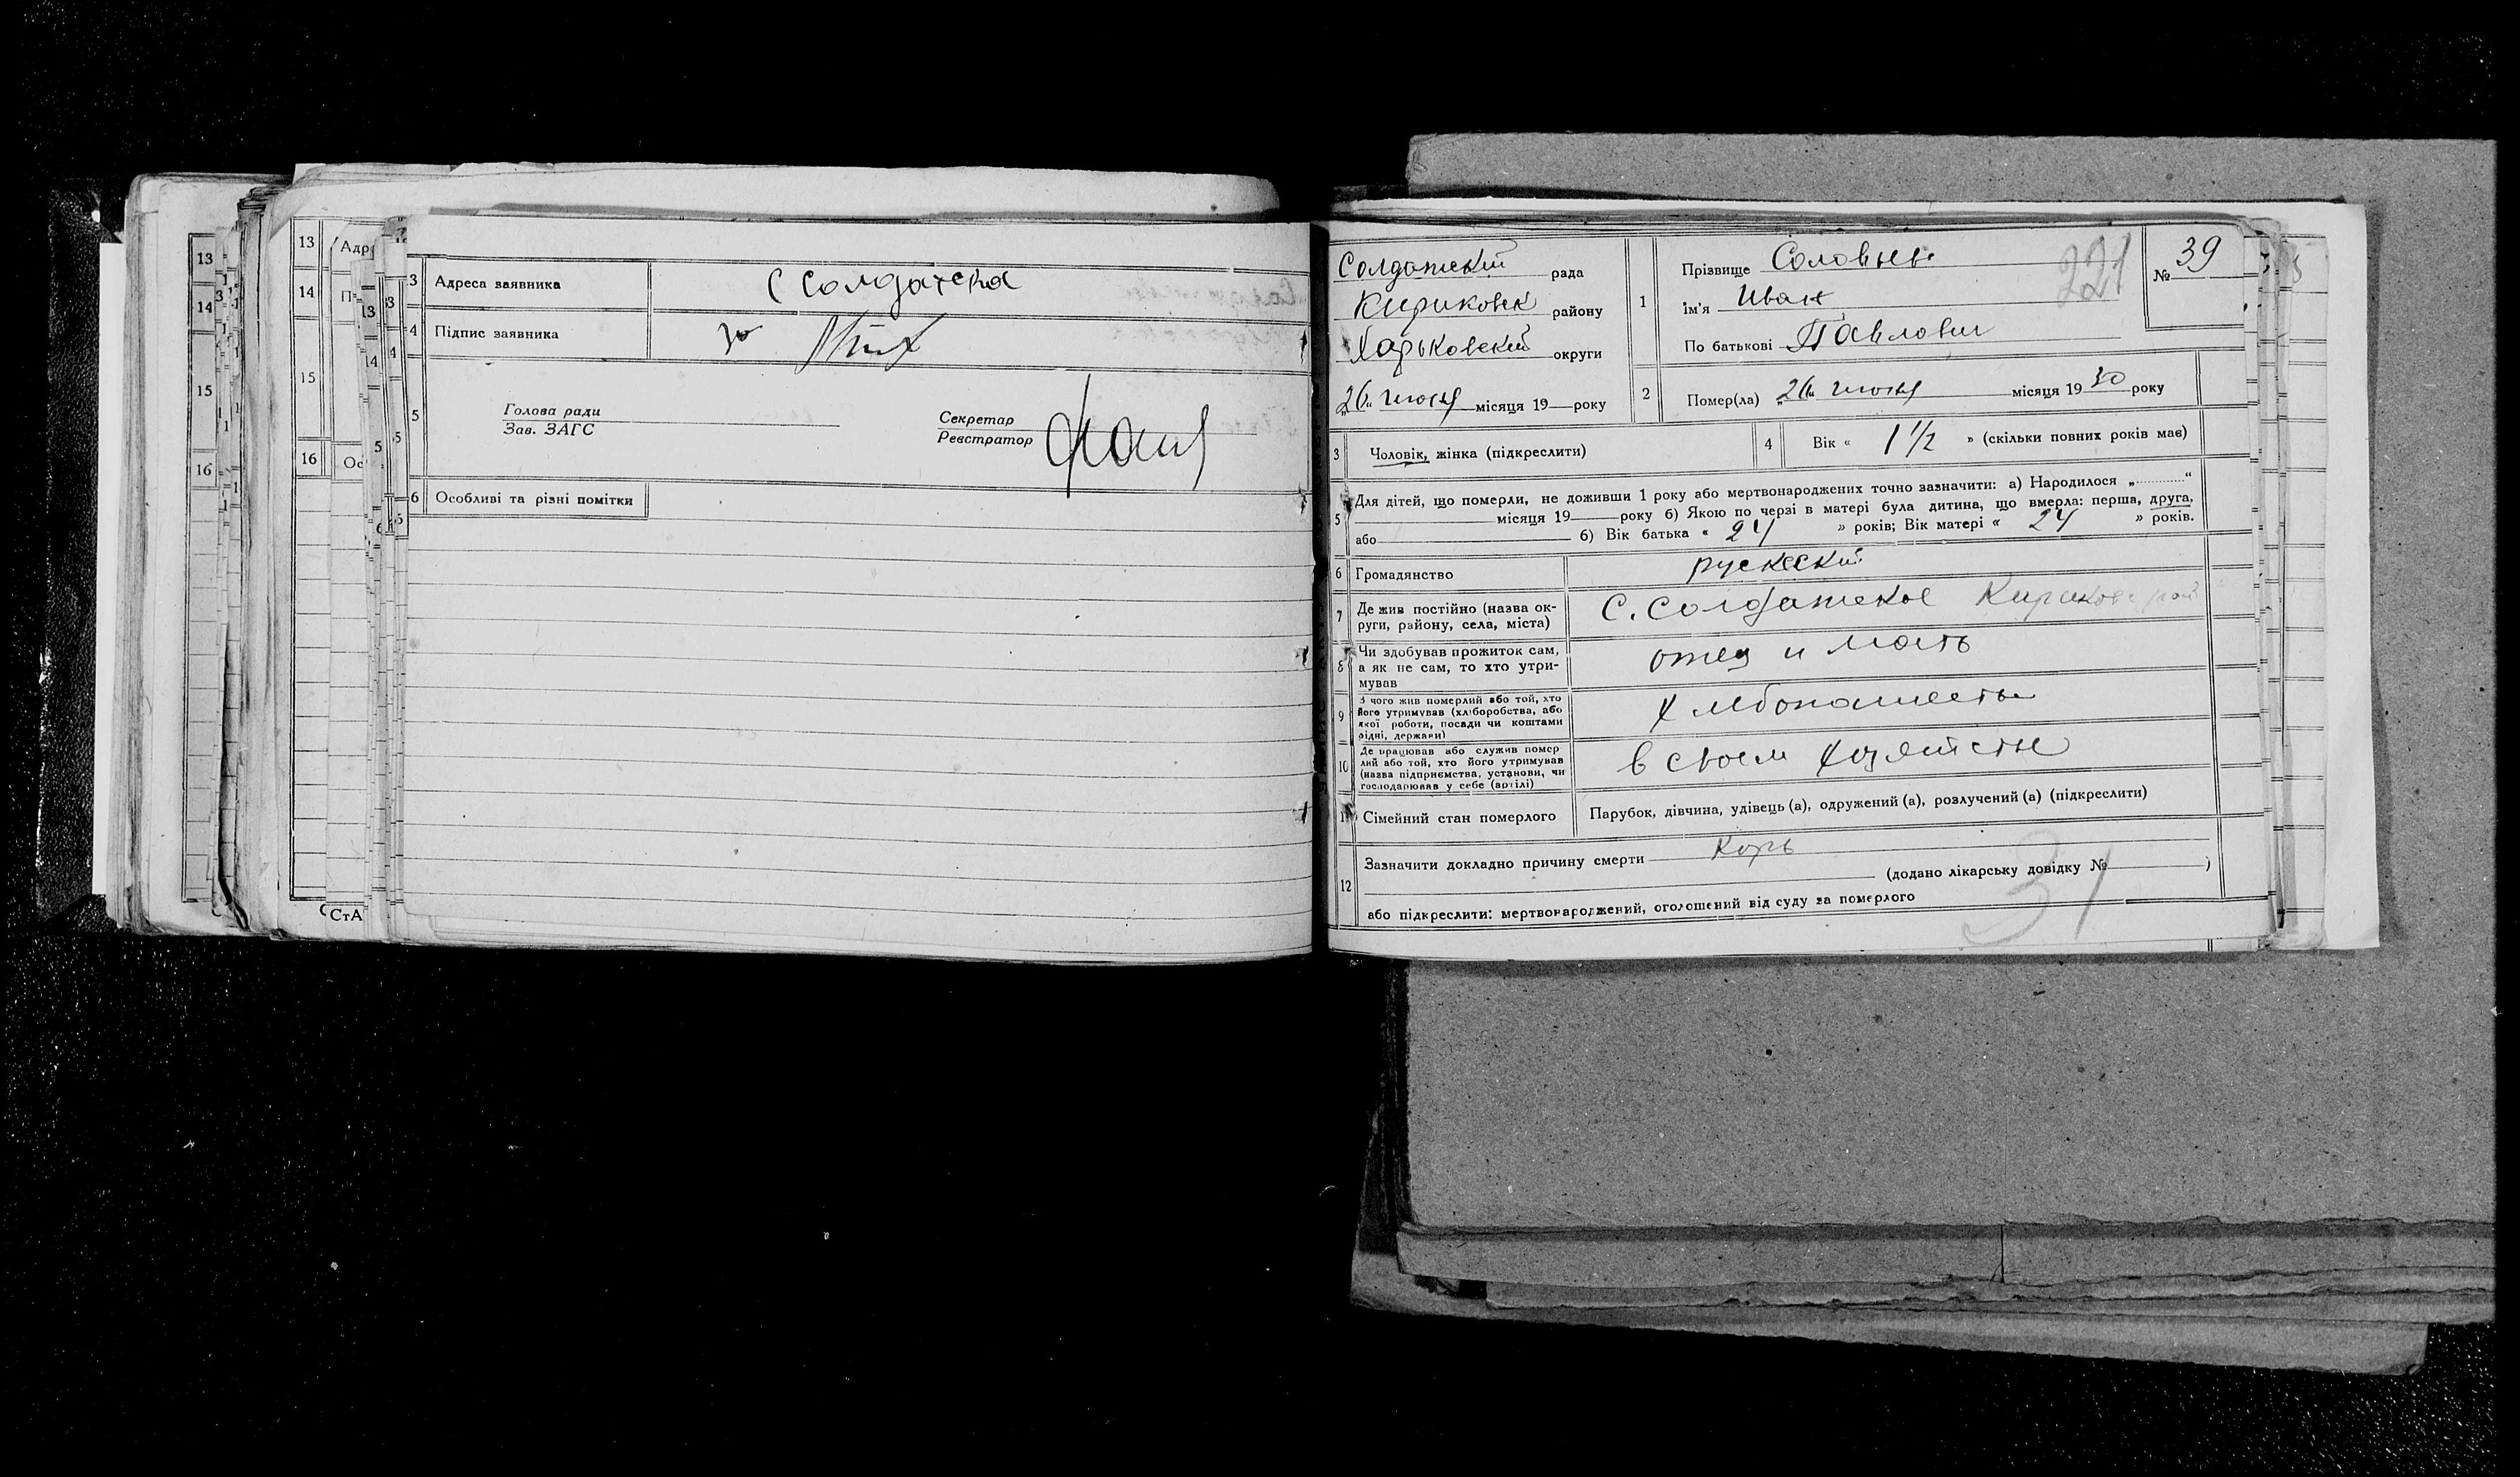 13
14
15
16
13
14
15
16
Адр
Ос
СтА
3 Адреса заявника С Солдатска
4 Підпис заявника
5 Голова ради
Зав. ЗАГС
Секретар
Реєстратор
6 Особливі та різні помітки
Солдатский рада
Кириковск району
Харьковский округи
„26“ июня місяця 19 року
1 Прізвище Соловьев
ім'я Иван
По батькові Павлович
221
№ 39
2 Помер(ла) „26“ июня місяця 1930 року
3 Чоловік, жінка (підкреслити)
4 Вік « 1 1/2 » (скільки повних років має)
5 Для дітей, що померли, не доживши 1 року або мертвонароджених точно зазначити: а) Народилося „............“
місяця 19 року б) Якою по черзі в матері була дитина, що вмерла: перша, друга,
або б) Вік батька « 24 » років; Вік матері « 24 » років.
6 Громадянство русксский
7 Де жив постійно (назва ок-
руги, району, села, міста) С. Солдатское Кириков. рай
8 Чи здобував прожиток сам,
а як не сам, то хто утри-
мував отец и мать
9 З чого жив померлий або той, хто
його утримував (хліборобства, або
якої роботи, посади чи коштами
рідні, держави)
10 Де працював або служив помер
лий або той, хто його утримував
(назва підприємства, установи, чи
господарював у себе (артілі) в своем
11 Сімейний стан померлого Парубок, дівчина, удівець (а), одружений (а), розлучений (а) (підкреслити)
12 Зазначити докладно причину смерти Корь
(додано лікарську довідку № )
або підкреслити: мертвонароджений, оголошений від суду за померлого
31